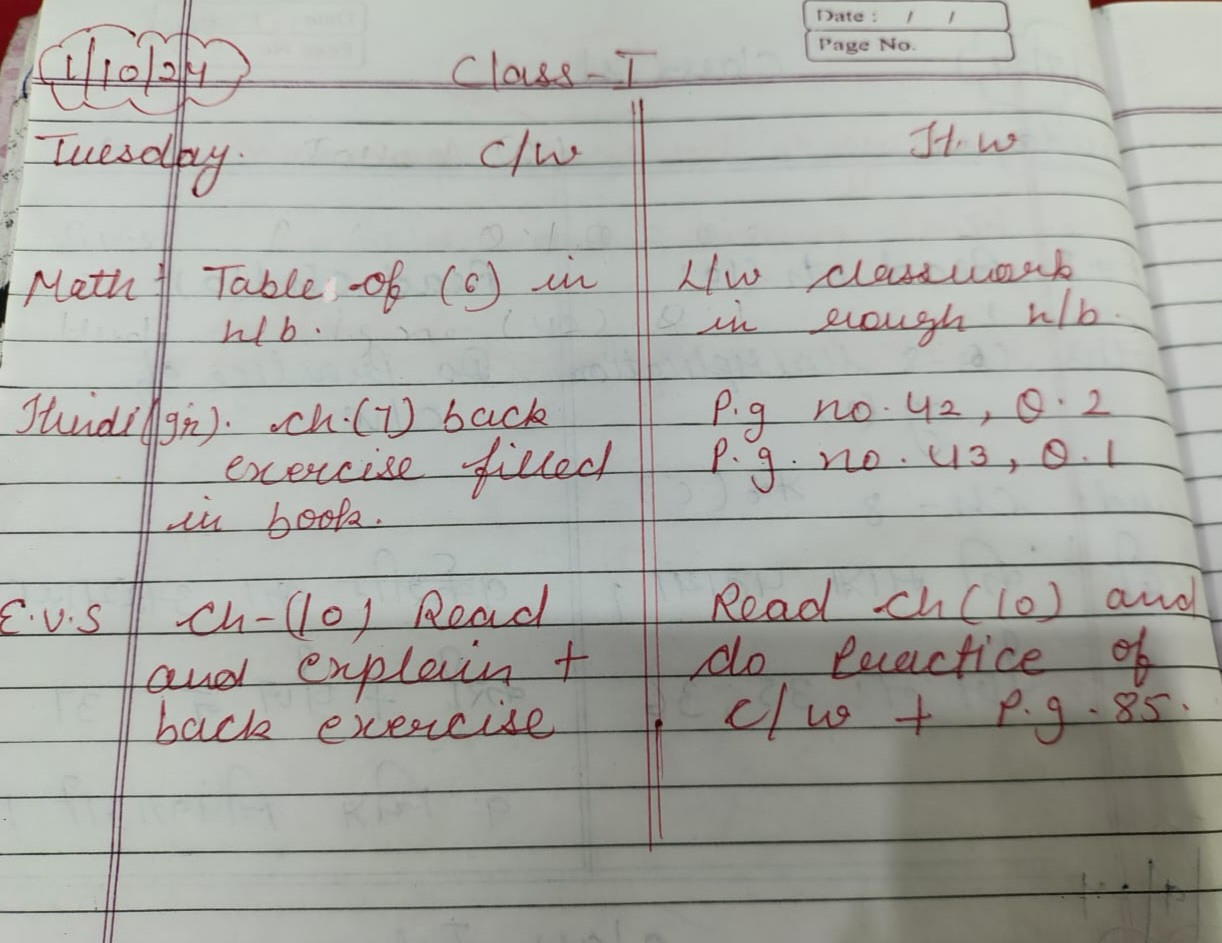 Date : / /
Page No.
1/10/24
Class-I
Tuesday. C/W H.w
Math : Table of (6) in
n/b.
L/W classwork
in rough n/b.
Hindi(gr). ch.(7) back
exercise filled
in book.
P.g no. 42, Q.2
P.g. no. 43, Q.1
E.V.S ch-(10) Read
and explain +
back exercise
Read ch(10) and
do Practice of
c/w + P.g-85.